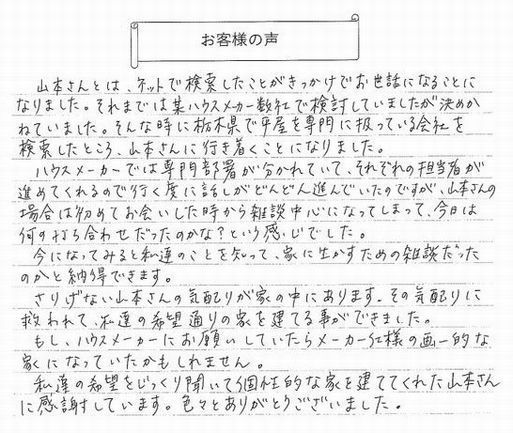 お客様の声
山本さんとは、ネットで検索したことがきっかけでお世話になることに
なりました。それまでは某ハウスメーカー数社で検討していましたが決めか
ねていました。そんな時に栃木県で平屋を専門に扱っている会社を
検索したところ、山本さんに行き着くことになりました。
ハウスメーカーでは専門部署が分かれていて、それぞれの担当者が
進めてくれるので行く度に話しがどんどん進んでいたのですが、山本さんの
場合は初めてお会いした時から雑談中心になってしまって、今日は
何の打ち合わせだったのかな?という感じでした。
今になってみると私達のことを知って、家に生かすための雑談だった
のかと納得できます。
さりげない山本さんの気配りが家の中にあります。その気配りに
救われて、私達の希望通りの家を建てる事ができました。
もし、ハウスメーカーにお願いしていたらメーカー仕様の画一的な
家になっていたかもしれません。
私達の希望をじっくり聞いて個性的な家を建ててくれた山本さん
に感謝しています。色々とありがとうございました。